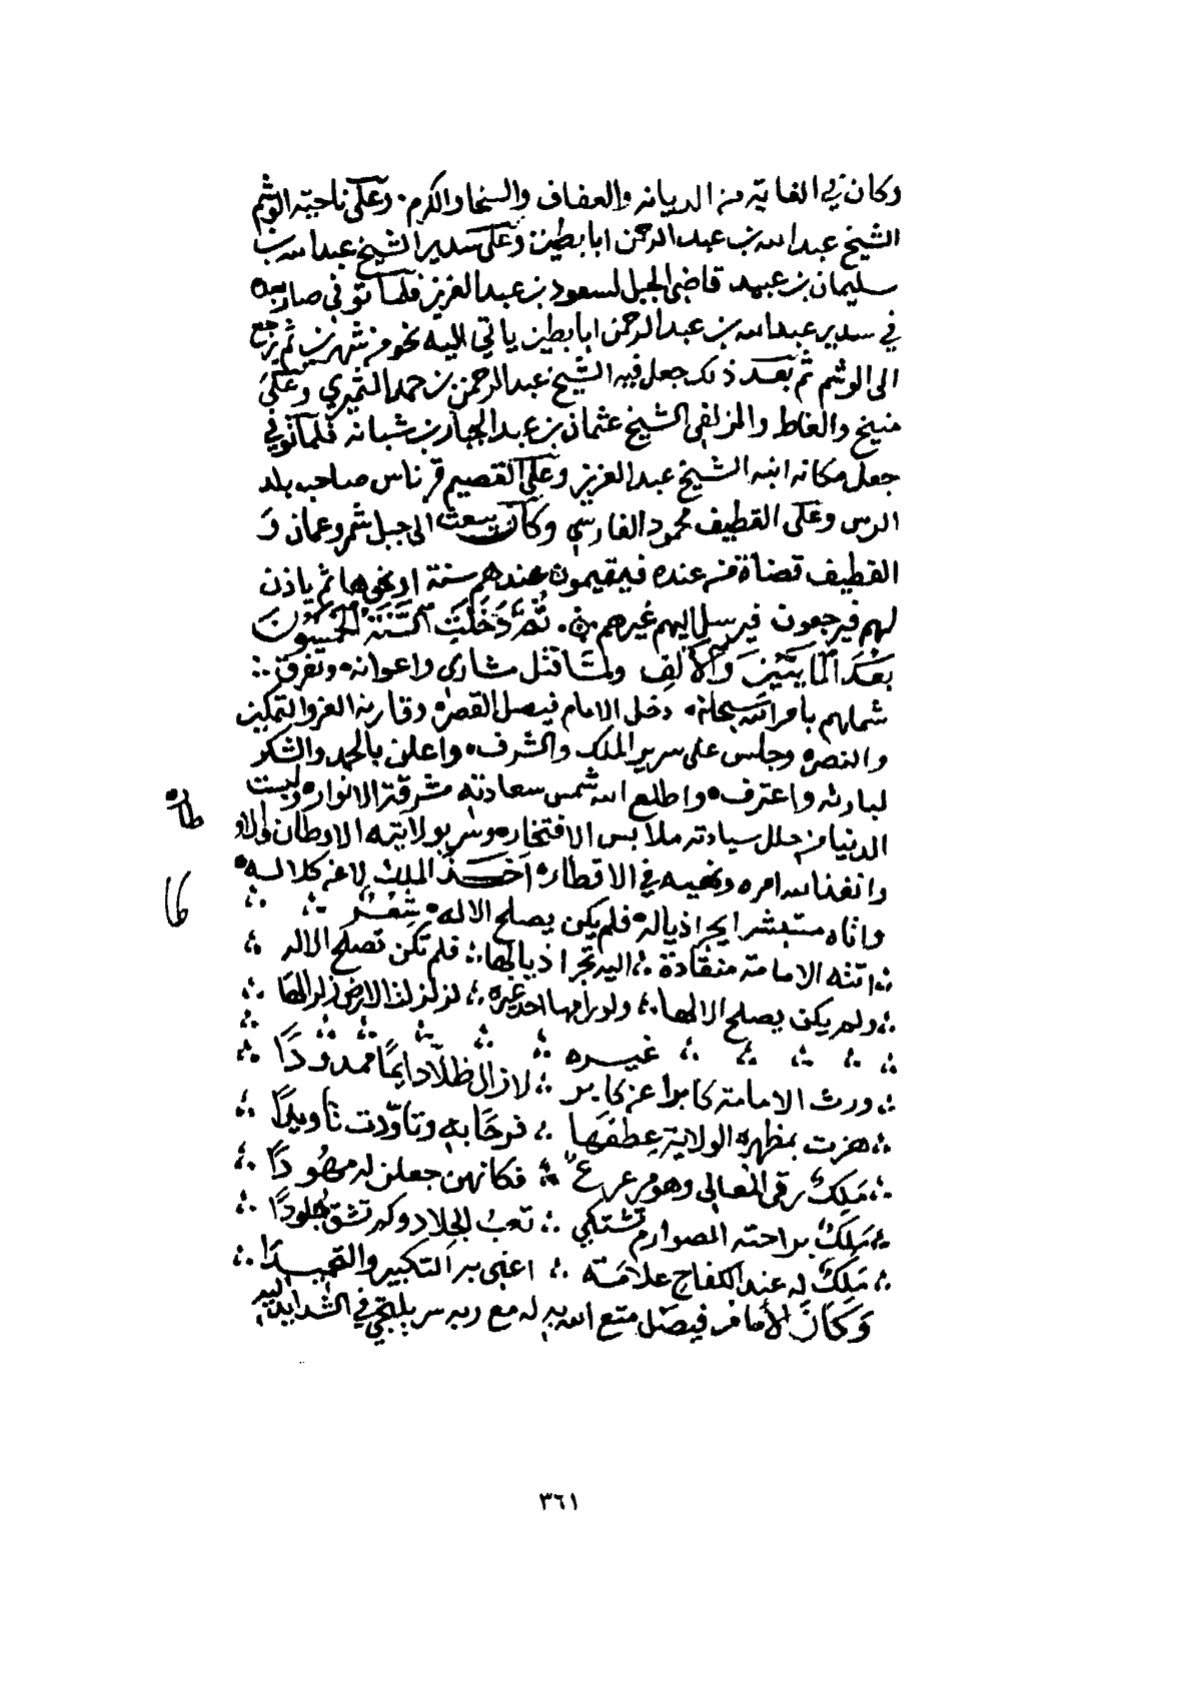 وكان في الغاية من الديانه والعفاف والسخا والكرم. وعلى ناحية الوشم
الشيخ عبدالله بن عبدالرحمن ابا بطين وعلى سدير الشيخ عبدالله بن
سليمان بن عبيد قاضي الجبل لسعود بن عبدالعزيز فلما توفى صار بعده
في سدير عبدالله بن عبدالرحمن ابا بطين ياتي اليه نحو من شهرين ثم يرجع
الى الوشم ثم بعد ذلك جعل فيه الشيخ عبدالرحمن بن حمد الثميري وعلى
منيخ والغاط والزلفي الشيخ عثمان بن عبدالجبار بن شبانه فلما توفي
جعل مكانه ابنه الشيخ عبدالعزيز وعلى القصيم قرناس صاحب بلد
الرس وعلى القطيف محمود الفارسي وكان يبعث الى جبل شمر وعمان و
القطيف قضاة من عنده فيقيمون عندهم سنة او نحوها ثم ياذن
لهم فيرجعون فيرسل اليهم غيرهم ثم دخلت السنة الخمسون
بعد المايتين والالف ولما قتل مشاري واعوانه وتفرق
شملهم بامر الله سبحانه دخل الامام فيصل القصر وقارنه العز والتمكين
والنصر وجلس على سرير الملك والشرف واعلن بالحمد والشكر
لبارئه واعترف واطلع الله شمس سعادته مشرقة الانوار ولبست
الدنيا من حلل سيادته ملابس الافتخار وسر بولايته الاوطان
وانفذ الله امره ونهيه في الاقطار اخذ الملك لا عن كلاله
واتاه مستبشرا يجر اذياله فلم يكن يصلح الا له شعر
اتته الامامة منقادة ∴ اليه تجر اذيالها ∴ فلم تكن تصلح الا له
ولم يكن يصلح الا لها ∴ ولو رامها احد غيره ∴ لزلزلت الارض زلزالها
غيره
ورث الامامة كابرا عن كابر ∴ لا زال ظلا دايما ممدودا
هزت بمظهره الولاية عطفها ∴ فرحا به وتاودت تاويدا
ملك رقى المعالى وهو مرعرع ∴ فكانهن جعلن له مهودا
ملك براحته الصوارم تشتكي ∴ تعب الجلاد وكم تشق جلودا
ملك له عند الكفاح علامة ∴ اعنى به التكبير والتحميدا
وكان الامام فيصل متع الله به له مع ربه سر يلتجي في الشدايد اليه
٣٦١